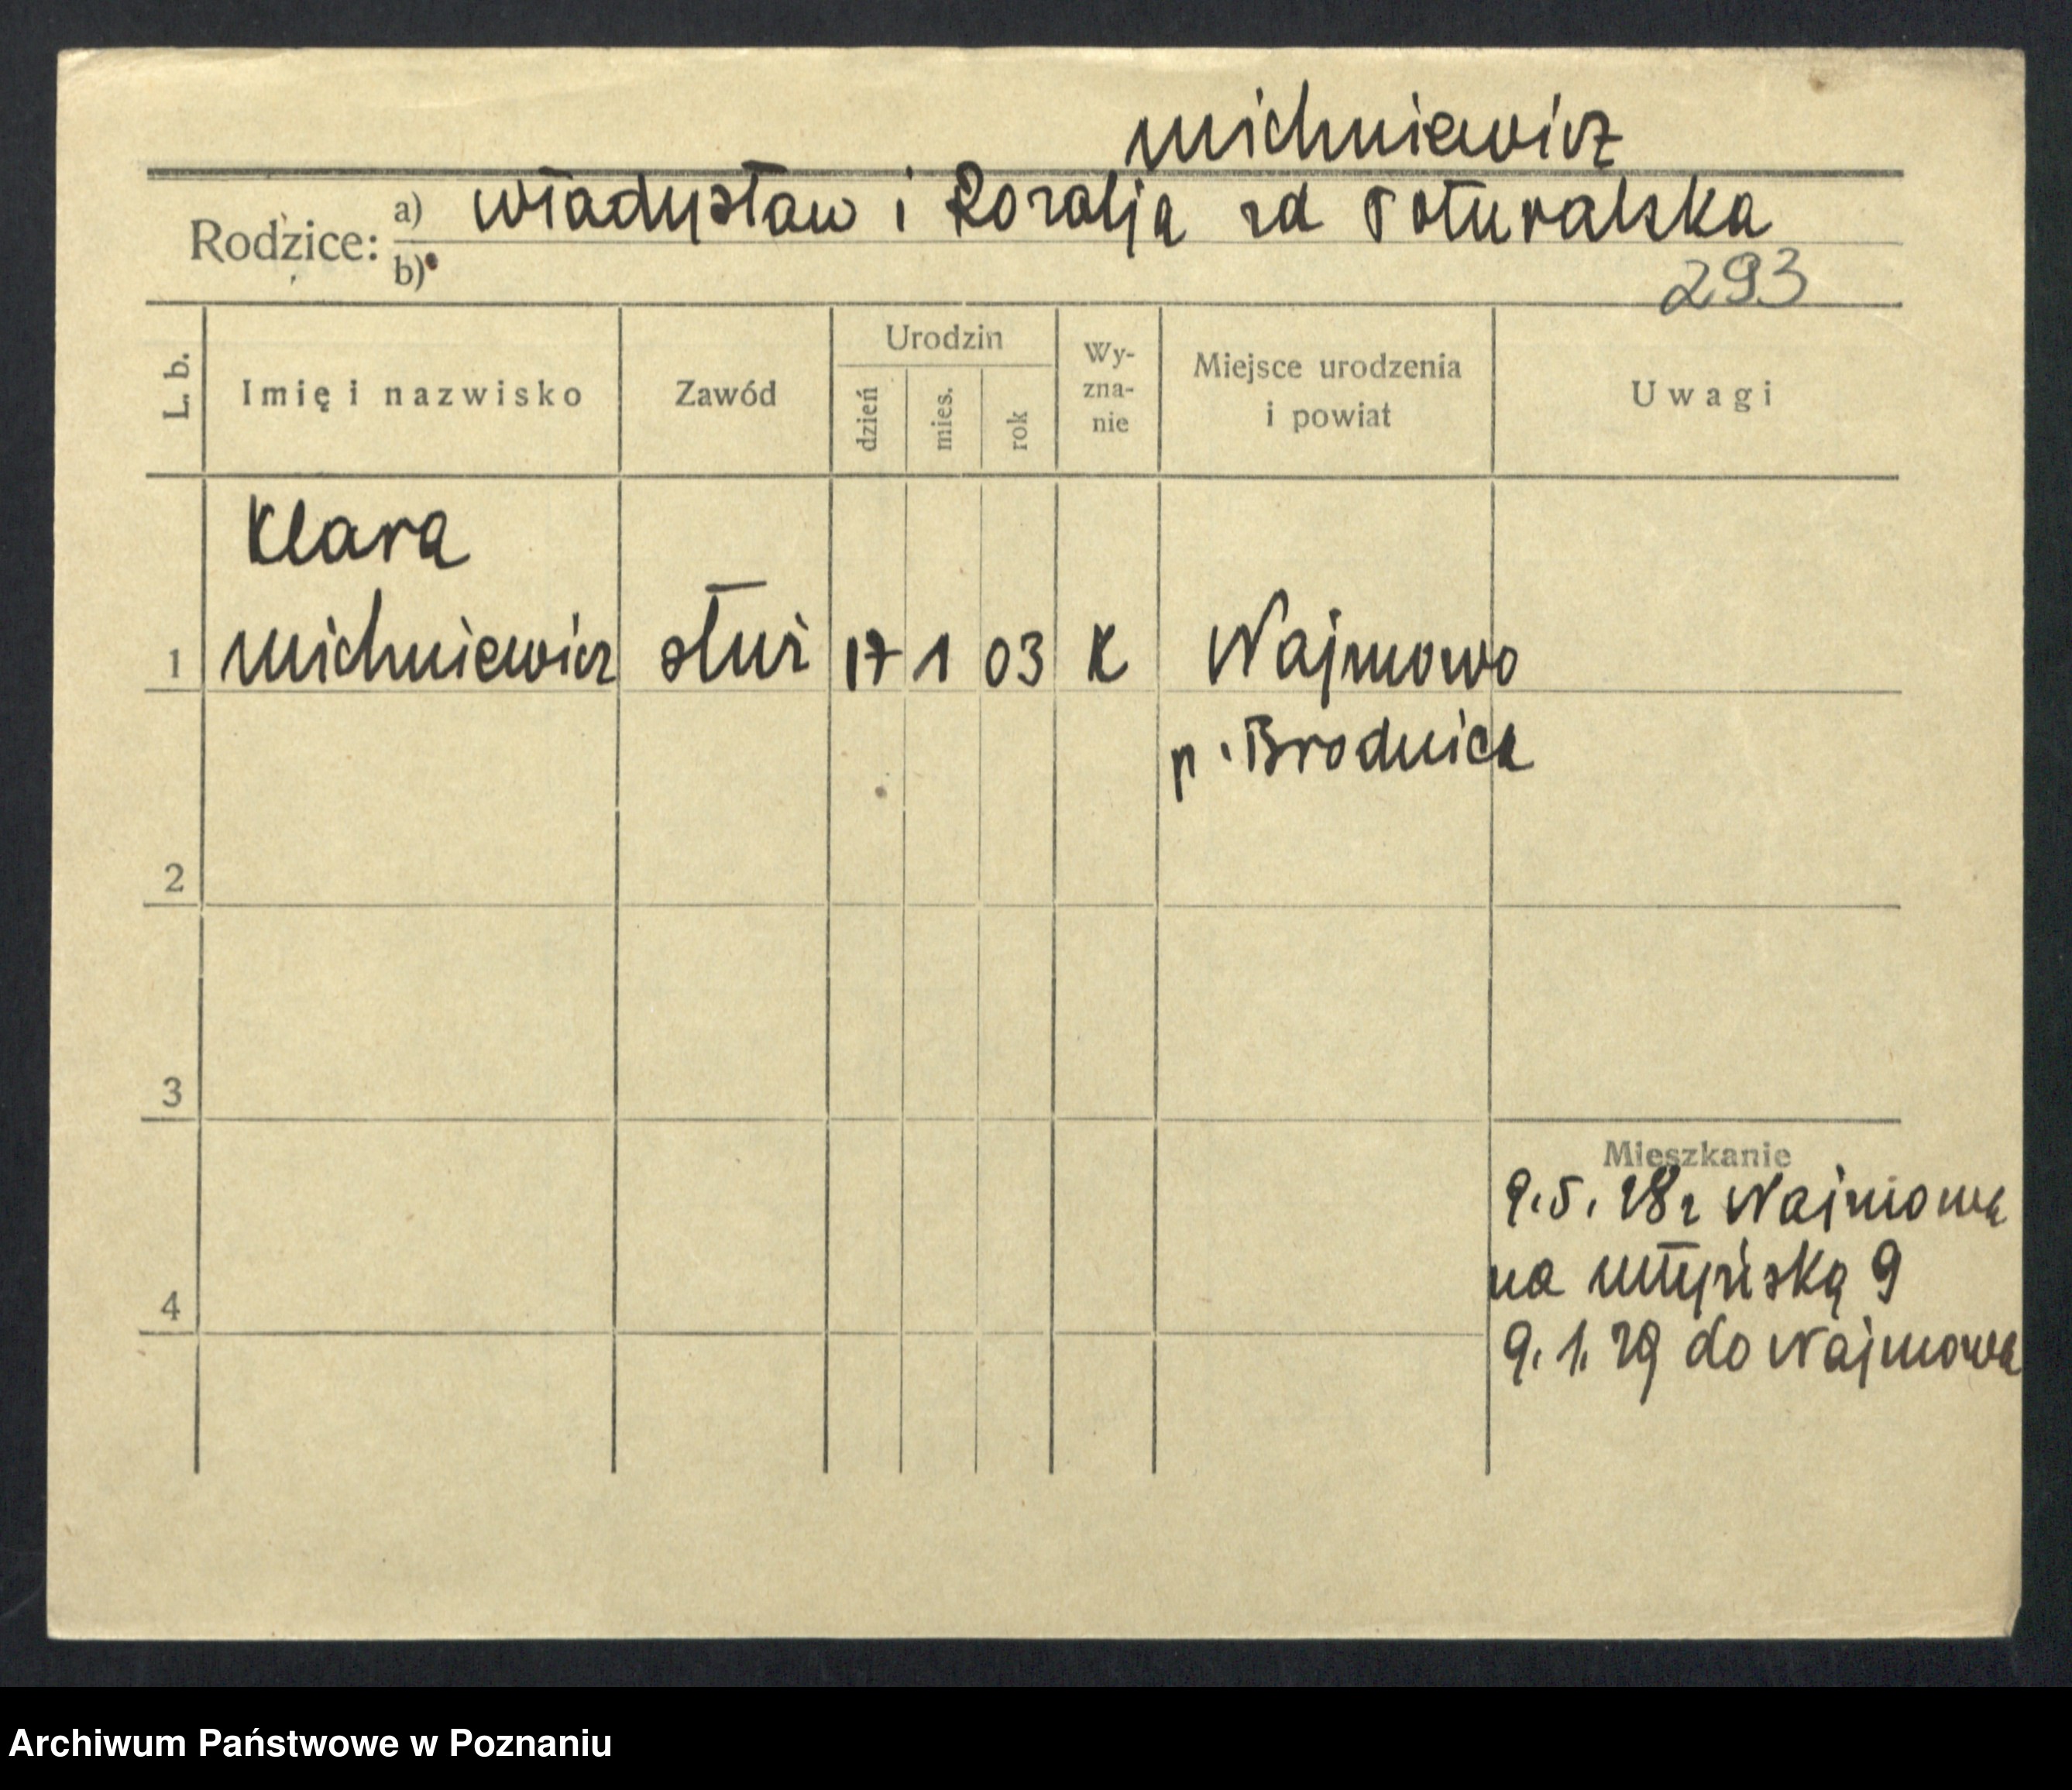 Michniewicz
Rodzice: a) Władysław i Rozalja zd Poturalska
b)
293
L. b.
Imię i nazwisko
Zawód
Urodzin
dzień
mies.
rok
Wy-
zna-
nie
Miejsce urodzenia
i powiat
Uwagi
Klara
1 Michniewicz służ 17 1 03 K Najmowo
p. Brodnica
2
3
Mieszkanie
9.5.28 z Najmowa
na Młyńską 9
4
9.1.29 do Najmowa
Archiwum Państwowe w Poznaniu